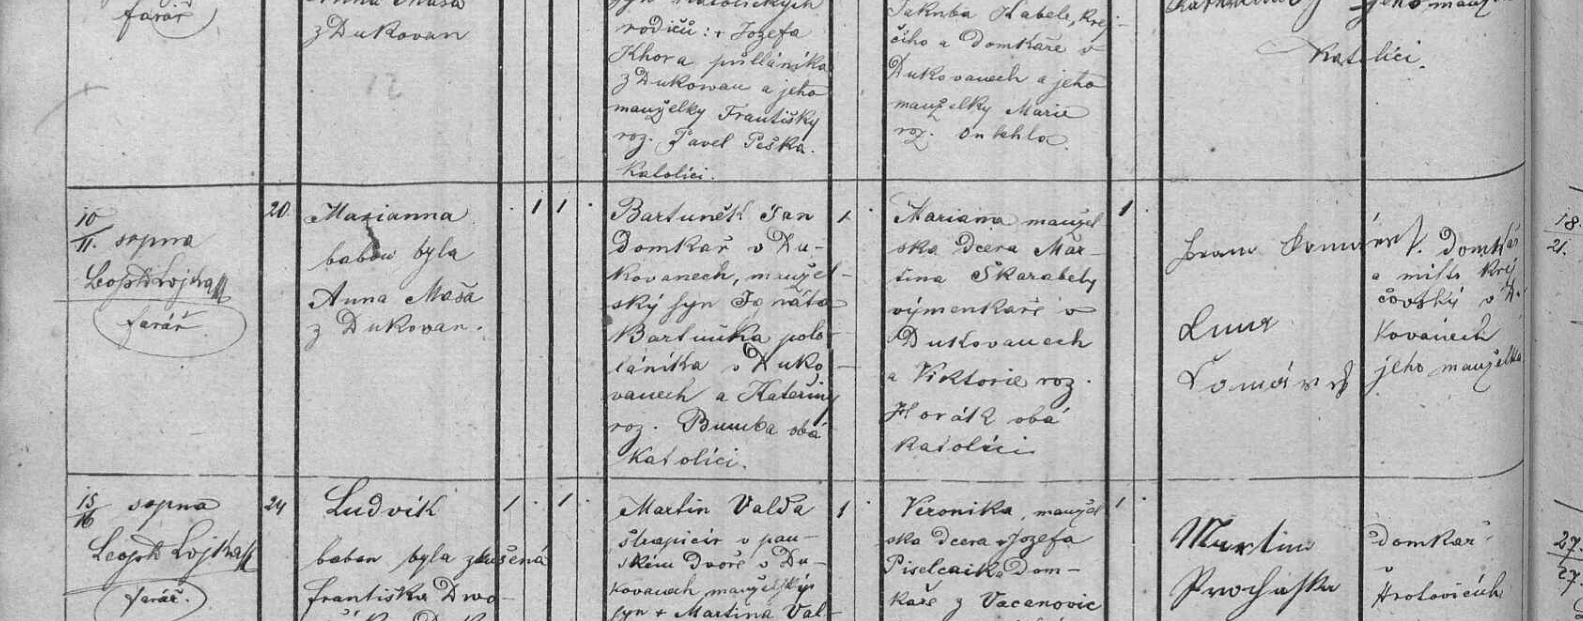 farář
z Dukovan
rodičů: + Jozefa
Khora půlláníka
z Dukowan a jeho
manželky Františky
roz. Pavel Peška.
Katolíci.
Jakuba Kabele, krej-
čího a domkaře v
Dukovanech a jeho
manželky Marie
roz.
Katolíci.
10/11. sopna
Leop. Lojka
farář
20
Marianna
babou byla
Anna Maša
z Dukowan.
1 1
Bartuněk Jan
domkař v Du-
kovanech, manžel-
ský syn Ignáta
Bartuňka polo-
láníka v Duko-
vanech a Kateřiny
roz. Bumba oba
Katolíci.
1
Mariana manžel
ska dcera Mar-
tina Škarabely
výmenkaře v
Dukovanech
a Viktorie roz.
Horák obá
katolíci
1
domkař
a mistr krej
čovský v Du
kovanech
jeho manželka
18/21.
15/16 sopna
Leop. Lojka
farář.
24
Ludvík
baban byla zkušená
Františka Dwo-
1 1
Martin Valda
v pan-
ském Dvoře v Du-
kovanech manželský
syn + Martina Val-
1
Veronika, manžel
ska dcera + Jozefa
Dom-
kaře z Vacanovic
1
Martin
Procháska
domkař
Hrotovicích
27./27.